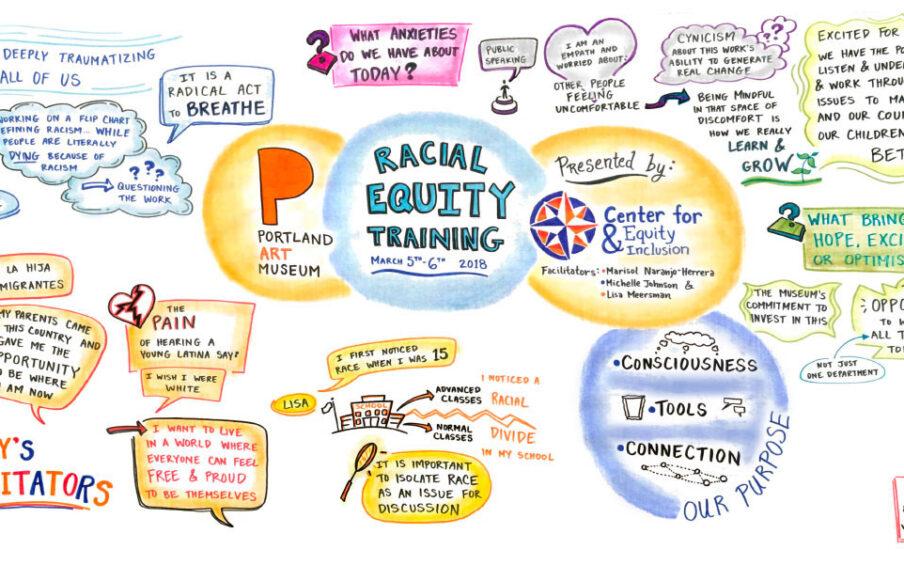 DEEPLY TRAUMATIZING
ALL OF US
IT IS A
RADICAL ACT
TO BREATHE
WORKING ON A FLIP CHART
DEFINING RACISM... WHILE
PEOPLE ARE LITERALLY
DYING BECAUSE OF
RACISM
???
QUESTIONING
THE WORK
WHAT ANXIETIES
DO WE HAVE ABOUT
TODAY?
PUBLIC
SPEAKING
I AM AN
EMPATH AND
WORRIED ABOUT:
OTHER PEOPLE
FEELING
UNCOMFORTABLE
CYNICISM
ABOUT THIS WORK'S
ABILITY TO GENERATE
REAL CHANGE
???
BEING MINDFUL
IN THAT SPACE OF
DISCOMFORT IS
HOW WE REALLY
LEARN &
GROW
EXCITED FOR
WE HAVE THE
LISTEN &
& WORK
ISSUES TO
AND OUR
OUR CHILDREN
P
PORTLAND
ART
MUSEUM
RACIAL
EQUITY
TRAINING
MARCH 5TH-6TH 2018
Presented by:
Center for
Equity
& Inclusion
Facilitators: • Marisol Naranjo-Herrera
• Michelle Johnson &
• Lisa Meersman
WHAT
HOPE,
OR
THE MUSEUM'S
COMMITMENT TO
INVEST IN THIS
ALL
NOT JUST
ONE DEPARTMENT
LA HIJA
MY PARENTS CAME
THIS COUNTRY AND
GAVE ME THE
OPPORTUNITY
TO BE WHERE
I AM NOW
THE
PAIN
OF HEARING A
YOUNG LATINA SAY:
I WISH I WERE
WHITE
I WANT TO LIVE
IN A WORLD WHERE
EVERYONE CAN FEEL
FREE & PROUD
TO BE THEMSELVES
I FIRST NOTICED
RACE WHEN I WAS 15
LISA
SCHOOL
ADVANCED
CLASSES
NORMAL
CLASSES
I NOTICED A
RACIAL
DIVIDE
IN MY SCHOOL
IT IS IMPORTANT
TO ISOLATE RACE
AS AN ISSUE FOR
DISCUSSION
• CONSCIOUSNESS
• TOOLS
• CONNECTION
OUR PURPOSE